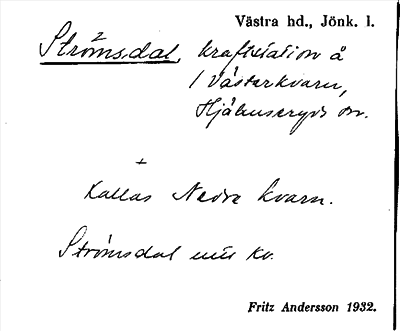 Västra hd., Jönk. l.
Strömsdal, kraftstation å
1 Västerkvarn,
Hjälmseryds sn.
Kallas Nedre kvarn.
Strömsdal kv.
Fritz Andersson 1932.